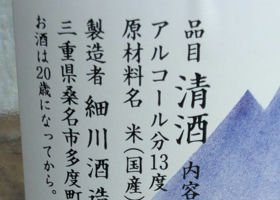 品目 清酒 内容
アルコール分13度
原材料名 米(国産)
製造者 細川酒造
三重県桑名市多度町
お酒は20歳になってから。